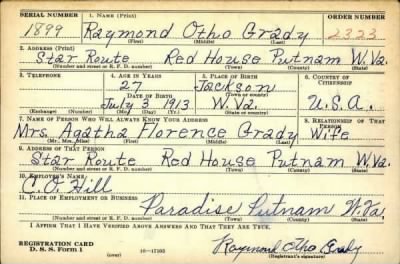 SERIAL NUMBER 1. NAME (Print) ORDER NUMBER
1899 Raymond Otho Grady 2323
(First) (Middle) (Last)
2. ADDRESS (Print)
Star Route Red House Putnam W.Va.
(Number and street or R. F. D. number) (Town) (County) (State)
3. TELEPHONE 4. AGE IN YEARS 5. PLACE OF BIRTH 6. COUNTRY OF CITIZENSHIP
27 Jackson
DATE OF BIRTH (Town or county)
July 3 1913 W.Va. U.S.A.
(Exchange) (Number) (Mo.) (Day) (Yr.) (State or country)
7. NAME OF PERSON WHO WILL ALWAYS KNOW YOUR ADDRESS 8. RELATIONSHIP OF THAT PERSON
Mrs. Agatha Florence Grady Wife
(Mr., Mrs., Miss) (First) (Middle) (Last)
9. ADDRESS OF THAT PERSON
Star Route Red House Putnam W.Va.
(Number and street or R. F. D. number) (Town) (County) (State)
10. EMPLOYER'S NAME
C. O. Hill
11. PLACE OF EMPLOYMENT OR BUSINESS
Paradise Putnam W.Va.
(Number and street or R. F. D. number) (Town) (County) (State)
I AFFIRM THAT I HAVE VERIFIED ABOVE ANSWERS AND THAT THEY ARE TRUE.
REGISTRATION CARD
D. S. S. Form 1 16—17105 Raymond Otho Grady
(over) (Registrant's signature)